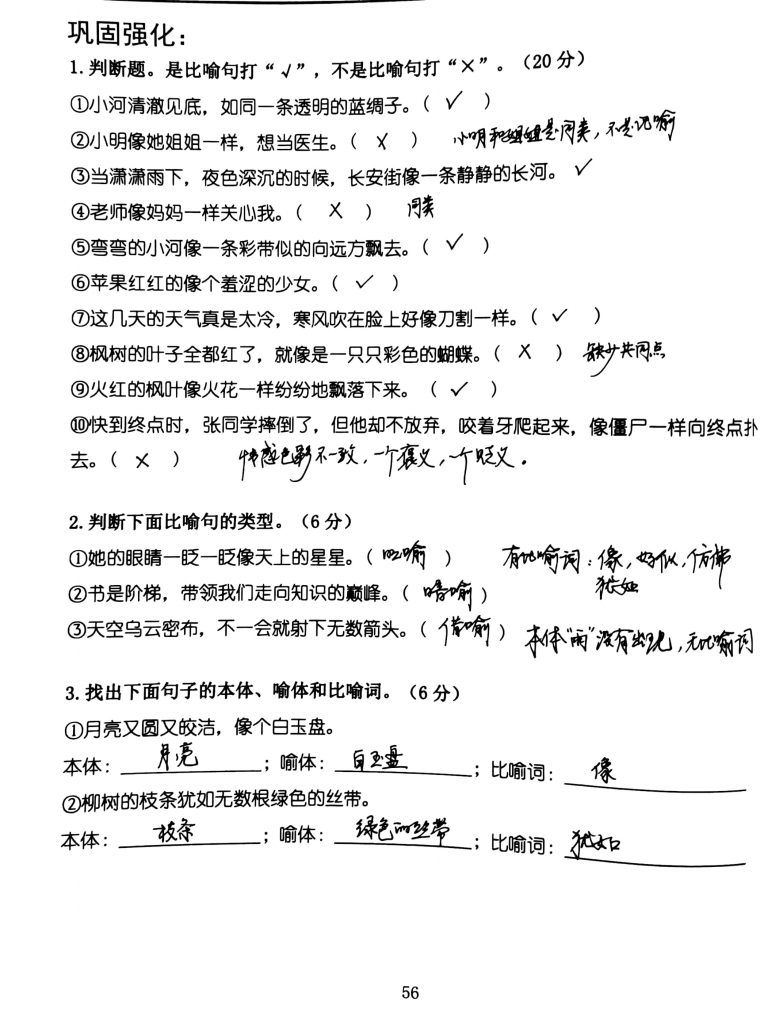 巩固强化：
1.判断题。是比喻句打“√”，不是比喻句打“×”。（20分）
①小河清澈见底，如同一条透明的蓝绸子。（ ✓ ）
②小明像她姐姐一样，想当医生。（ × ） 小明和姐姐是同类，不是比喻
③当潇潇雨下，夜色深沉的时候，长安街像一条静静的长河。 ✓
④老师像妈妈一样关心我。（ × ） 同类
⑤弯弯的小河像一条彩带似的向远方飘去。（ ✓ ）
⑥苹果红红的像个羞涩的少女。（ ✓ ）
⑦这几天的天气真是太冷，寒风吹在脸上好像刀割一样。（ ✓ ）
⑧枫树的叶子全都红了，就像是一只只彩色的蝴蝶。（ × ） 缺少共同点
⑨火红的枫叶像火花一样纷纷地飘落下来。（ ✓ ）
⑩快到终点时，张同学摔倒了，但他却不放弃，咬着牙爬起来，像僵尸一样向终点扑
去。（ × ） 情感色彩不一致，一个褒义，一个贬义。
2.判断下面比喻句的类型。（6分）
①她的眼睛一眨一眨像天上的星星。（ 明喻 ） 有比喻词：像，好似，仿佛
犹如
②书是阶梯，带领我们走向知识的巅峰。（ 暗喻 ）
③天空乌云密布，不一会就射下无数箭头。（ 借喻 ） 本体“雨”没有出现，无比喻词
3.找出下面句子的本体、喻体和比喻词。（6分）
①月亮又圆又皎洁，像个白玉盘。
本体：月亮；喻体：白玉盘；比喻词：像
②柳树的枝条犹如无数根绿色的丝带。
本体：枝条；喻体：绿色的丝带；比喻词：犹如
56